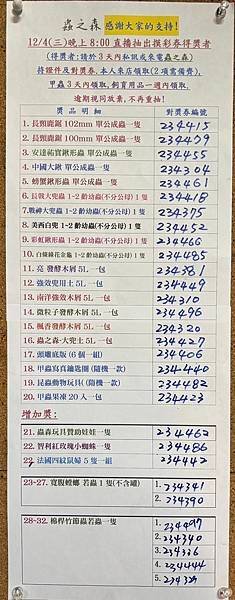 蟲之森 感謝大家的支持!
12/4(三)晚上 8:00 直播抽出摸彩券得獎者
(得獎者:請於 3 天內私訊或來電蟲之森)
持證件及對獎券,本人來店領取(2 項需備齊),
甲蟲 3 天內領取,飼育用品一週內領取,
逾期視同放棄,不再重抽!
獎品明細 對獎券編號
1. 長頸鹿鋸 102mm 單公成蟲一隻 234415
2. 長頸鹿鋸 100mm 單公成蟲一隻 234429
3. 安達祐實鍬形蟲 單公成蟲一隻 234455
4. 中國大鍬 單公成蟲一隻 234304
5. 螃蟹鍬形蟲 單公成蟲一隻 234461
6. 長戟大兜蟲 1~2 齡幼蟲(不分公母) 1 隻 234418
7. 戰神大兜蟲 1~2 齡幼蟲(不分公母) 1 隻 234375
8. 美西白兜 1~2 齡幼蟲(不分公母) 1 隻 234452
9. 彩虹鍬形蟲 1~2 齡幼蟲(不分公母) 1 隻 234466
10. 白條綠花金龜 1~2 齡幼蟲(不分公母) 1 隻 234485
11. 亮 發酵木屑 5L 一包 234381
12. 強效兜用土 5L 一包 234449
13. 南洋強效木屑 5L 一包 234310
14. 微粒子發酵木屑 5L 一包 234496
15. 楓香發酵木屑 5L 一包 234320
16. 蟲之森-大兜土 5L 一包 234427
17. 頭雕底版 (6 個一組) 234406
18. 甲蟲寫真鑰匙圈 (隨機一款) 234440
19. 昆蟲動物玩具 (隨機一款) 234482
20. 甲蟲果凍 20 入一包 234423
增加獎:
21. 蟲森玩具贊助娃娃一隻 234462
22. 智利紅玫瑰小蜘蛛一隻 234486
23. 法國四紋鼠婦 5 隻一組 234442
23-27. 寬腹螳螂 若蟲 1 隻(不含罐) 1. 234341
2. 234390
28-32. 棉桿竹節蟲若蟲一隻
2. 234340
3. 234336
4. 234444
5. 234325